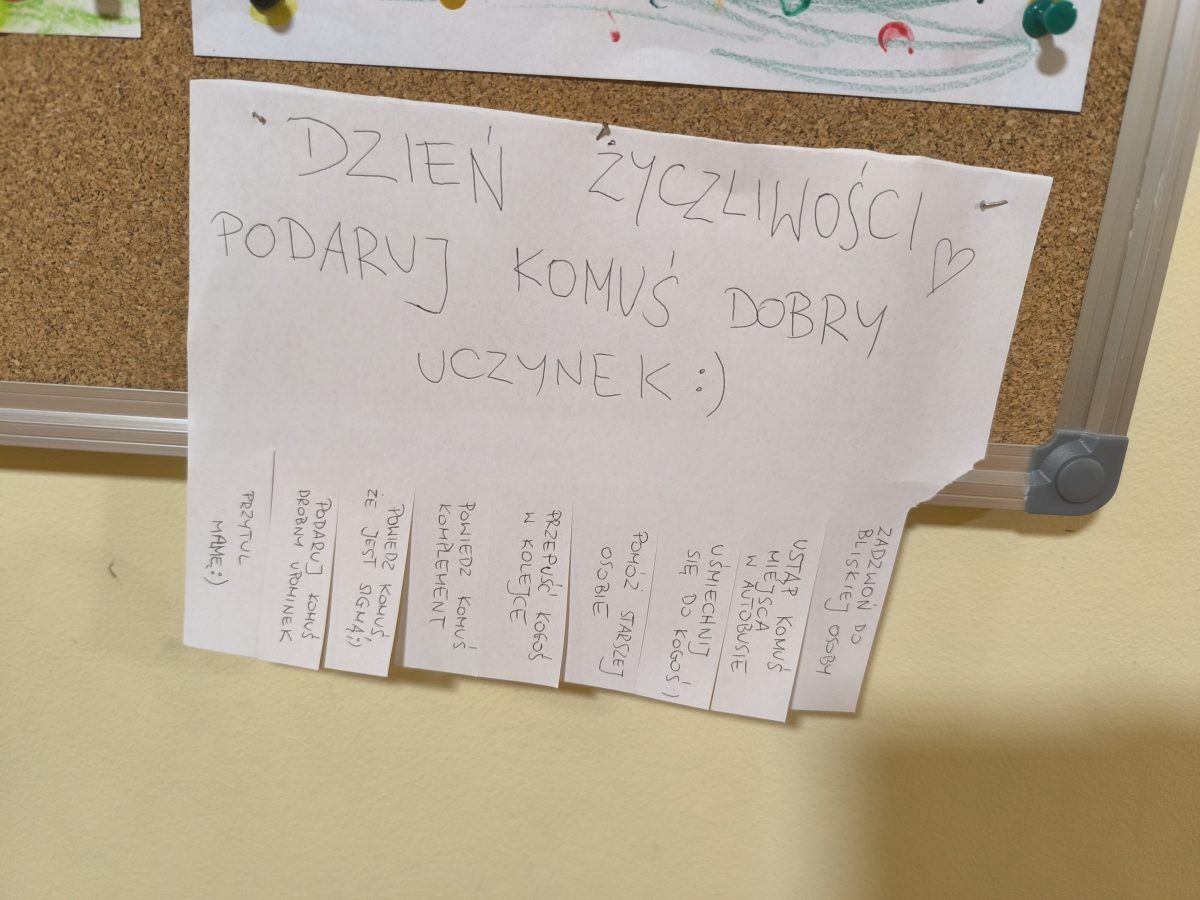 DZIEŃ ŻYCZLIWOŚCI ♡
PODARUJ KOMUŚ DOBRY
UCZYNEK :)
PRZYTUL
MAMĘ :)
PODARUJ KOMUŚ
DROBNY UPOMINEK
POWIEDZ KOMUŚ,
ŻE JEST SIGMĄ ;)
POWIEDZ KOMUŚ
KOMPLEMENT
PRZEPUŚĆ KOGOŚ
W KOLEJCE
POMÓŻ STARSZEJ
OSOBIE
UŚMIECHNIJ
SIĘ DO KOGOŚ :)
USTĄP KOMUŚ
MIEJSCA
W AUTOBUSIE
ZADZWOŃ DO
BLISKIEJ OSOBY